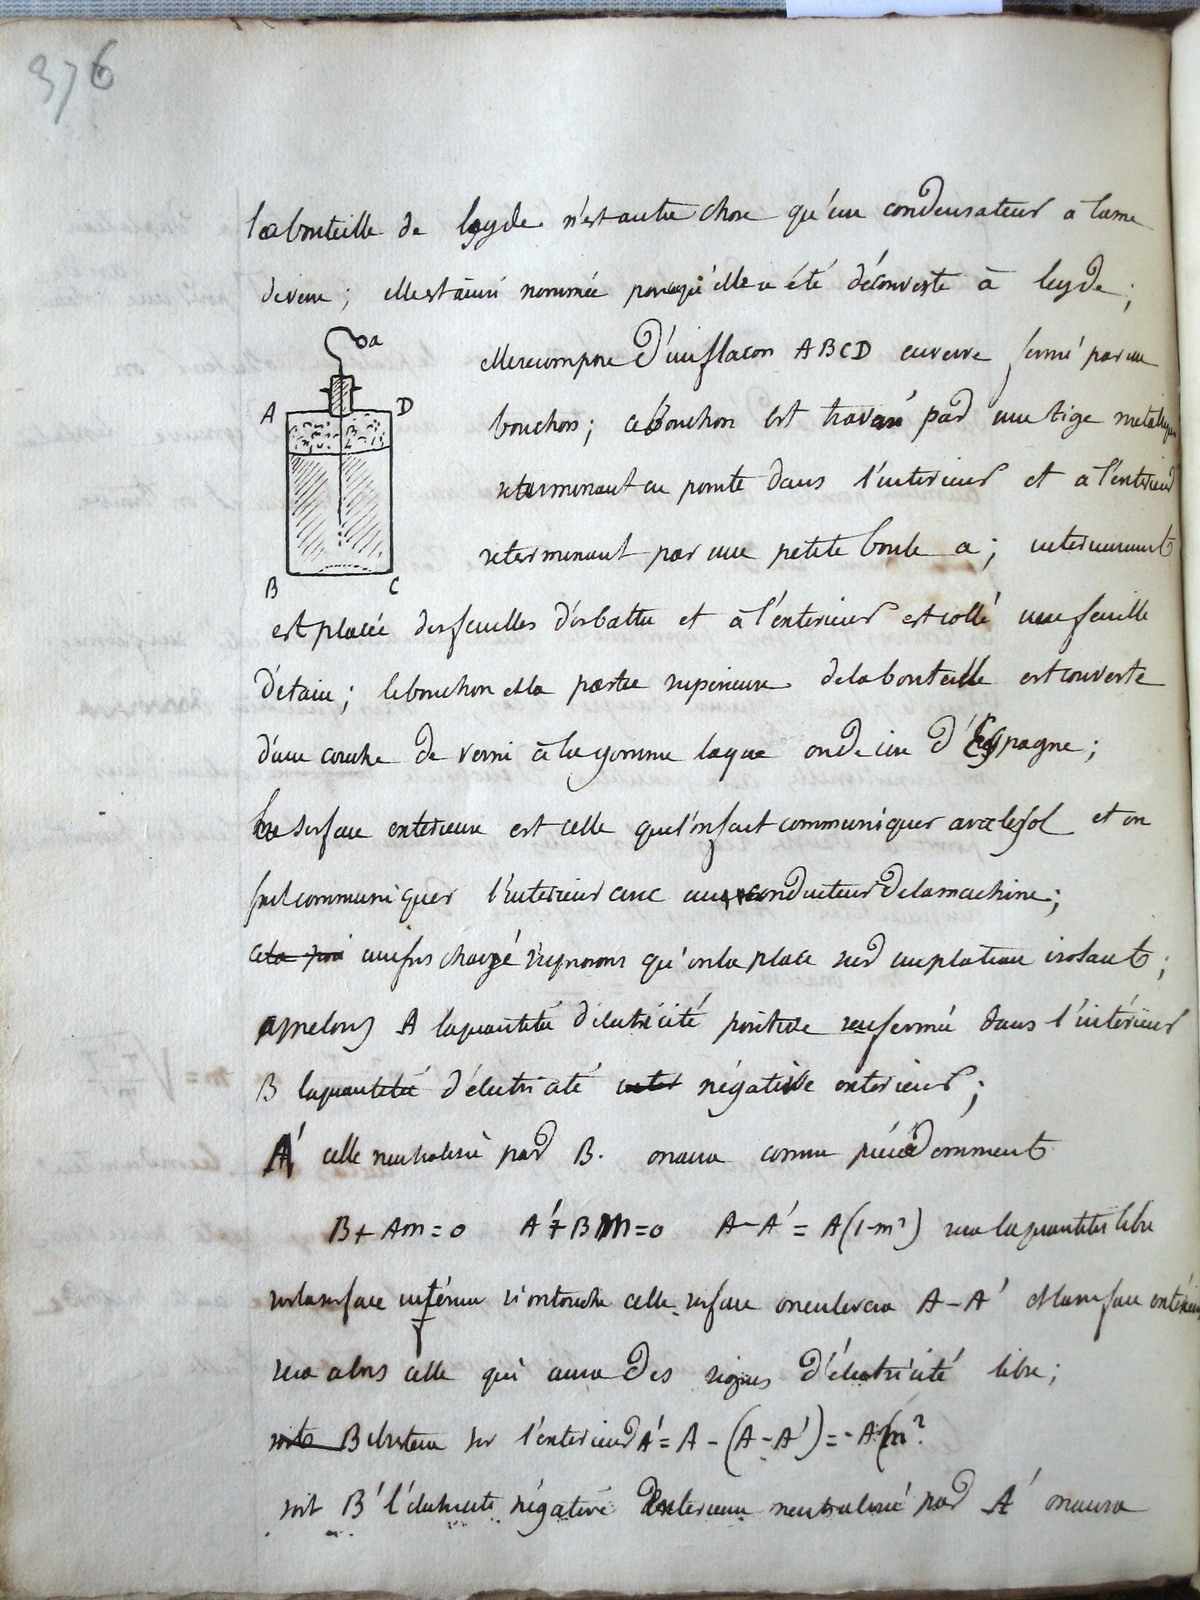 376
la bouteille de leyde n'est autre chose qu'un condensateur a lame
de verre; elle est ainsi nommée parcequ'elle a été découverte à leyde;
a
elle se compose d'un flacon ABCD en verre fermé par un
A D
bouchon; ce bouchon est traversé par une tige metallique
se terminant en pointe dans l'interieur et a l'exterieur
se terminant par une petite boule a; interieurement
B C
est placée des feuilles d'or battu et à l'exterieur est collé une feuille
d'étain; le bouchon et la partie superieure de la bouteille est couverte
d'une couche de verni à la gomme laque ou de cire d'Espagne;
la surface exterieure est celle que l'on fait communiquer avec le sol et on
fait communiquer l'interieur avec un conducteur de la machine;
cela posé une fois chargé supposons qu'on la place sur un plateau isolant;
appelons A la quantité d'électricité positive renfermée dans l'intérieur
B la quantité d'électricité inter négative exterieur;
A' celle neutralisé par B. on aura comme précédemment
B + Am = 0 A' + Bm = 0 A - A' = A(1-m²) sera la quantité libre
sur la surface intérieur si on touche celle surface on enlevera A - A' et la surface extérieur
sera alors celle qui aura des signes d'électricité libre;
soit B sur l'exterieur A' = A - (A - A') = - Am²
soit B' l'électricité négative exterieure neutralisé par A' on aura